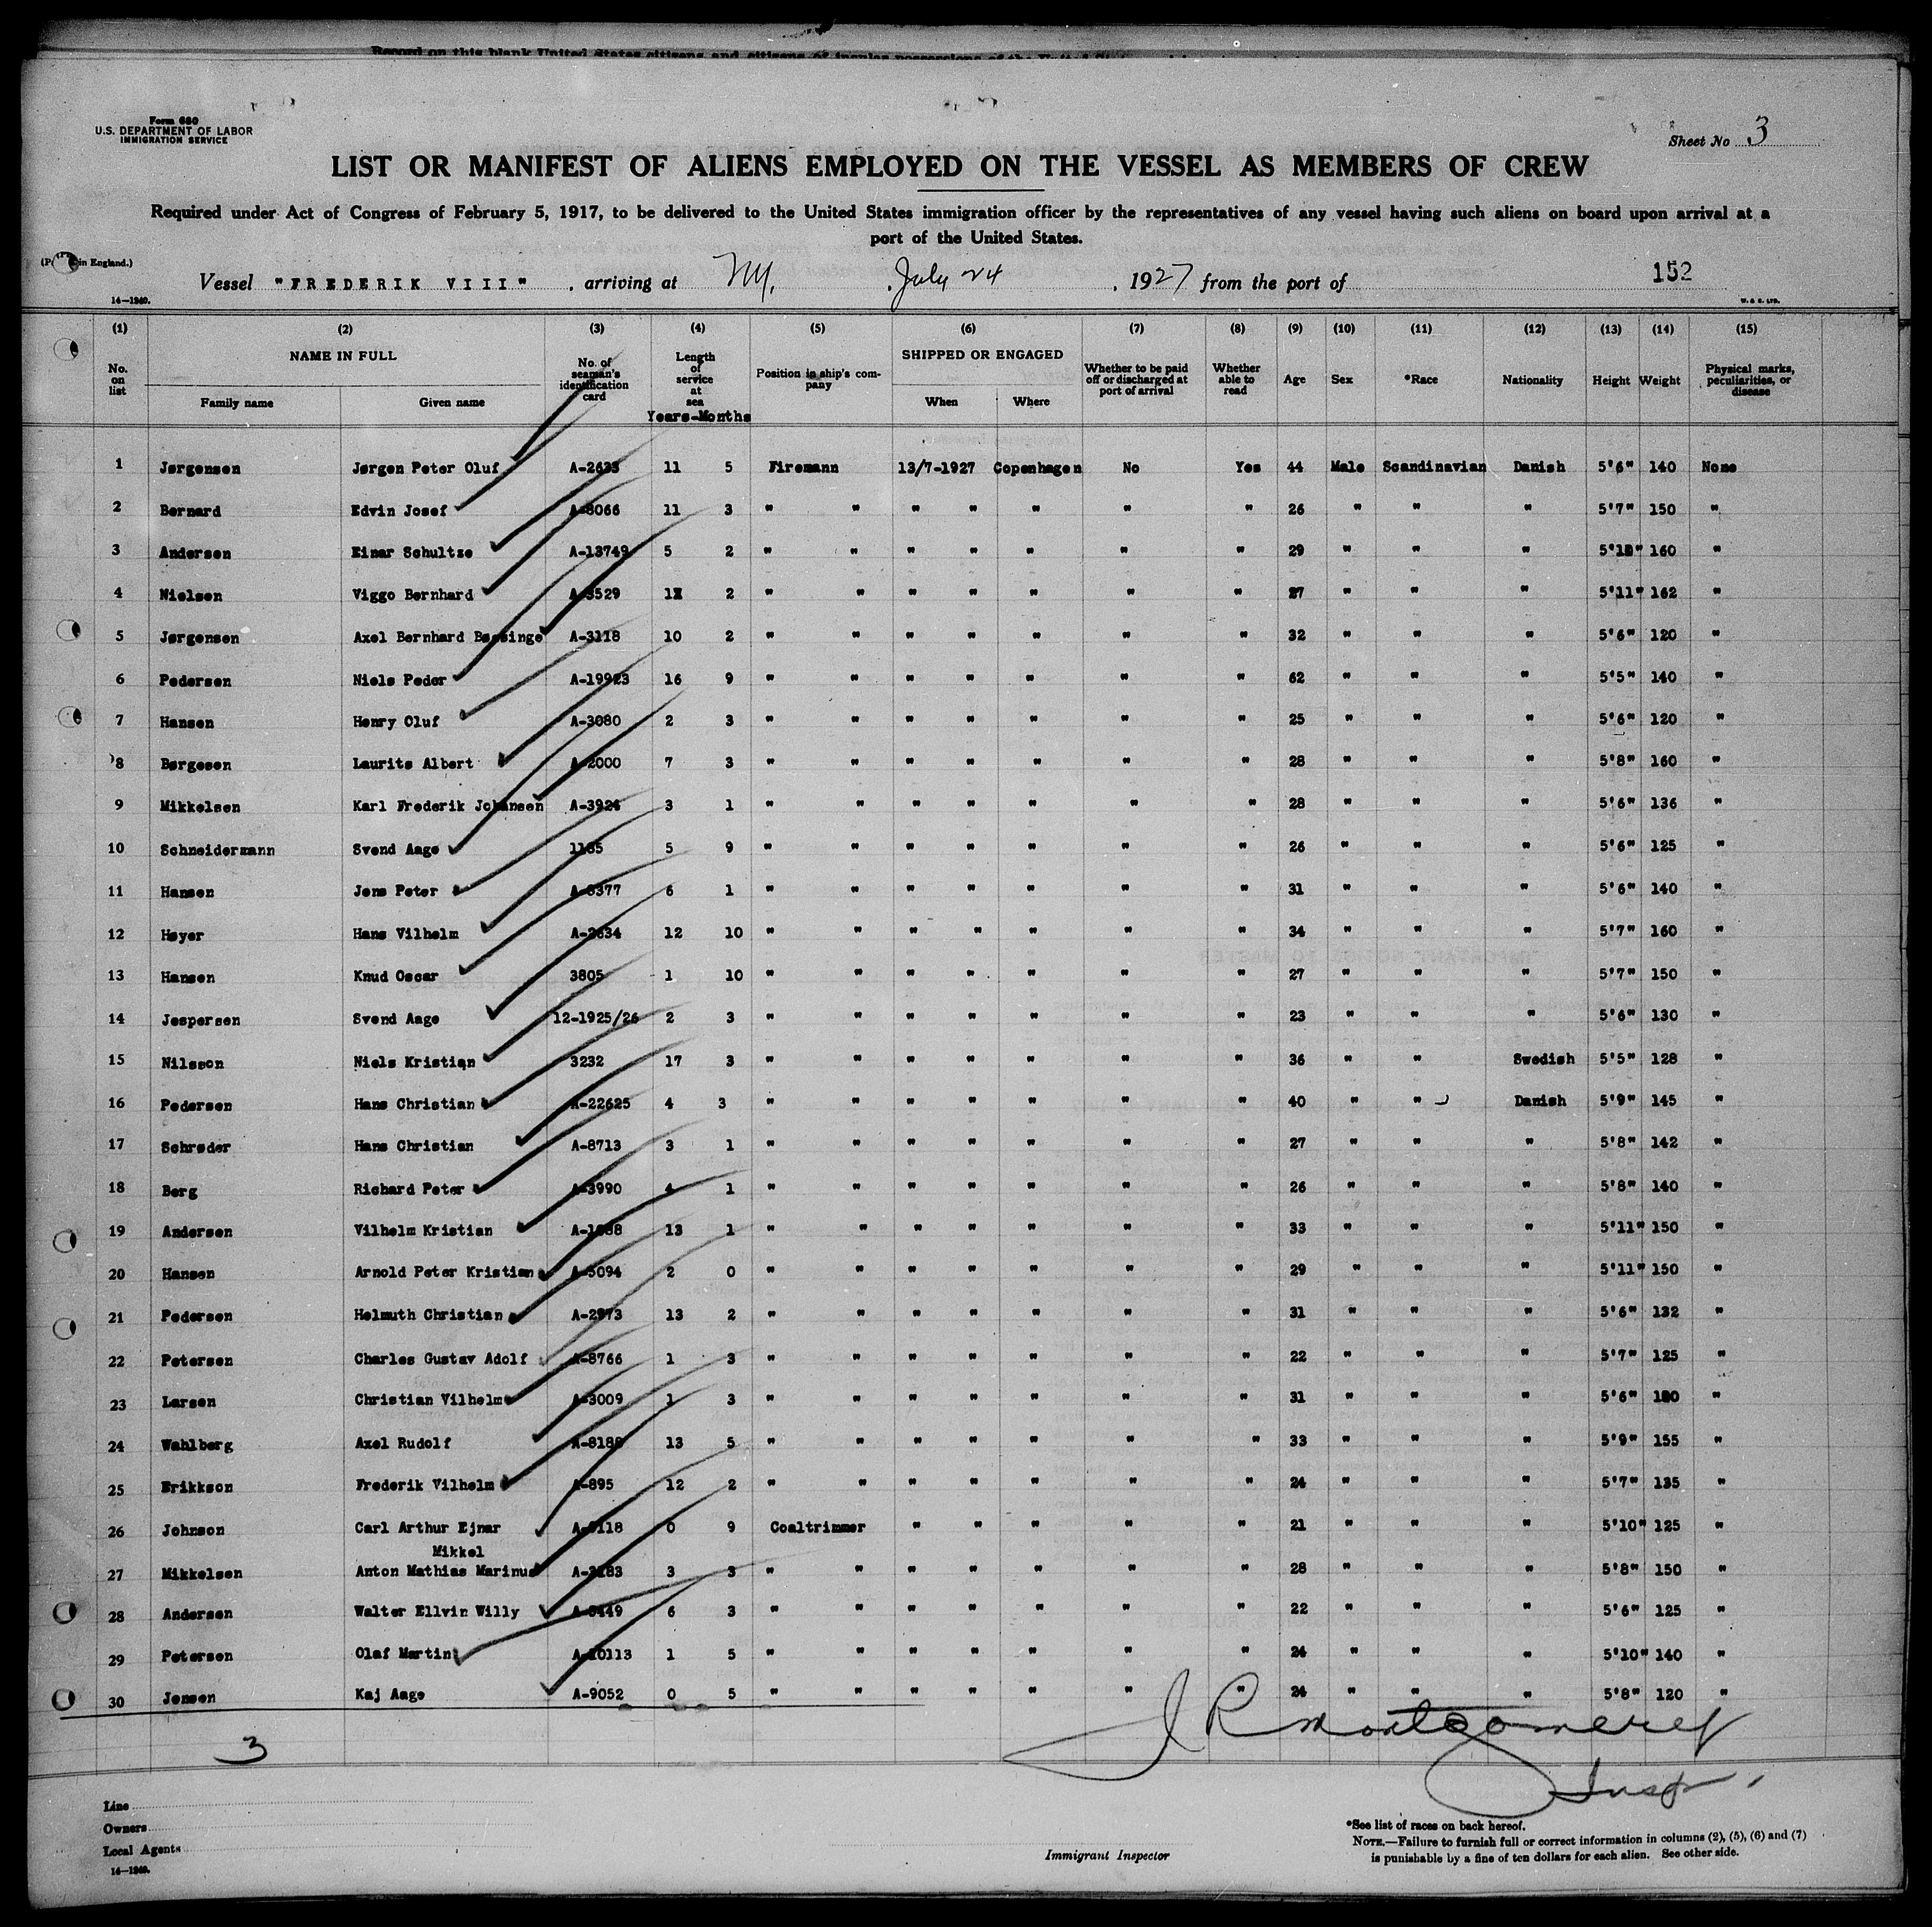 Record on this blank United States citizens and citizens of insular possessions of the United
Form 680
U.S. DEPARTMENT OF LABOR
IMMIGRATION SERVICE
Sheet No 3
LIST OR MANIFEST OF ALIENS EMPLOYED ON THE VESSEL AS MEMBERS OF CREW
Required under Act of Congress of February 5, 1917, to be delivered to the United States immigration officer by the representatives of any vessel having such aliens on board upon arrival at a
port of the United States.
in England.)
Vessel "FREDERIK VIII" , arriving at NY. , July 24 , 1927 from the port of 152
14—1240. W. & S. LTD.
(1) (2) (3) (4) (5) (6) (7) (8) (9) (10) (11) (12) (13) (14) (15)
No. on list NAME IN FULL Family name Given name No. of seaman's identification card Length of service at sea Years-Months Position in ship's company SHIPPED OR ENGAGED When Where Whether to be paid off or discharged at port of arrival Whether able to read Age Sex *Race Nationality Height Weight Physical marks, peculiarities, or disease
1 Jørgensen Jørgen Peter Oluf A-2633 11 5 Firemann 13/7-1927 Copenhagen No Yes 44 Male Scandinavian Danish 5'6" 140 None
2 Bernard Edvin Josef A-8066 11 3 " " " " " " " 26 " " " 5'7" 150 "
3 Andersen Einar Schultze A-13749 5 2 " " " " " " " 29 " " " 160 "
4 Nielsen Viggo Bernhard A-3529 2 " " " " " " " 27 " " " 5'11" 162 "
5 Jørgensen Axel Bernhard A-3118 10 2 " " " " " " " 32 " " " 5'6" 120 "
6 Pedersen Niels Peder A-19923 16 9 " " " " " " " 62 " " " 5'5" 140 "
7 Hansen Henry Oluf A-3080 2 3 " " " " " " " 25 " " " 5'6" 120 "
8 Børgesen Laurits Albert A-2000 7 3 " " " " " " " 28 " " " 5'8" 160 "
9 Mikkelsen Karl Frederik Johansen A-3924 3 1 " " " " " " " 28 " " " 5'6" 136 "
10 Schneidermann Svend Aage 1165 5 9 " " " " " " " 26 " " " 5'6" 125 "
11 Hansen Jens Peter A-3377 6 1 " " " " " " " 31 " " " 5'6" 140 "
12 Høyer Hans Vilhelm A-2634 12 10 " " " " " " " 34 " " " 5'7" 160 "
13 Hansen Knud Oscar 3805 1 10 " " " " " " " 27 " " " 5'7" 150 "
14 Jespersen Svend Aage 12-1925/26 2 3 " " " " " " " 23 " " " 5'6" 130 "
15 Nilsson Niels Kristian 3232 17 3 " " " " " " " 36 " " Swedish 5'5" 128 "
16 Pedersen Hans Christian A-22625 4 3 " " " " " " " 40 " " Danish 5'9" 145 "
17 Schrøder Hans Christian A-8713 3 1 " " " " " " " 27 " " " 5'8" 142 "
18 Berg Richard Peter A-3990 4 1 " " " " " " " 26 " " " 5'8" 140 "
19 Andersen Vilhelm Kristian 13 1 " " " " " " " 33 " " " 5'11" 150 "
20 Hansen Arnold Peter Kristian A-5094 2 0 " " " " " " " 29 " " " 5'11" 150 "
21 Pedersen Helmuth Christian A-2973 13 2 " " " " " " " 31 " " " 5'6" 132 "
22 Petersen Charles Gustav Adolf A-8766 1 3 " " " " " " " 22 " " " 5'7" 125 "
23 Larsen Christian Vilhelm A-3009 1 3 " " " " " " " 31 " " " 5'6" "
24 Wahlberg Axel Rudolf A-8188 13 5 " " " " " " " 33 " " " 5'9" 155 "
25 Erikkson Frederik Vilhelm A-895 12 2 " " " " " " " 24 " " " 5'7" 135 "
26 Johnson Carl Arthur Ejnar 0 9 Coaltrimmer " " " " " 21 " " " 5'10" 125 "
Mikkel
27 Mikkelsen Anton Mathias Marinus A-3183 3 3 " " " " " " " 28 " " " 5'8" 150 "
28 Andersen Walter Ellvin Willy 6 3 " " " " " " " 22 " " " 5'6" 125 "
29 Petersen Olaf Martin A-20113 1 5 " " " " " " " 24 " " " 5'10" 140 "
30 Jensen Kaj Aage A-9052 0 5 " " " " " " " 24 " " " 5'8" 120 "
3
J R Montgomerey
Insp.
Line
Owners
Local Agents
14—1240.
Immigrant Inspector
*See list of races on back hereof.
NOTE.—Failure to furnish full or correct information in columns (2), (5), (6) and (7)
is punishable by a fine of ten dollars for each alien. See other side.